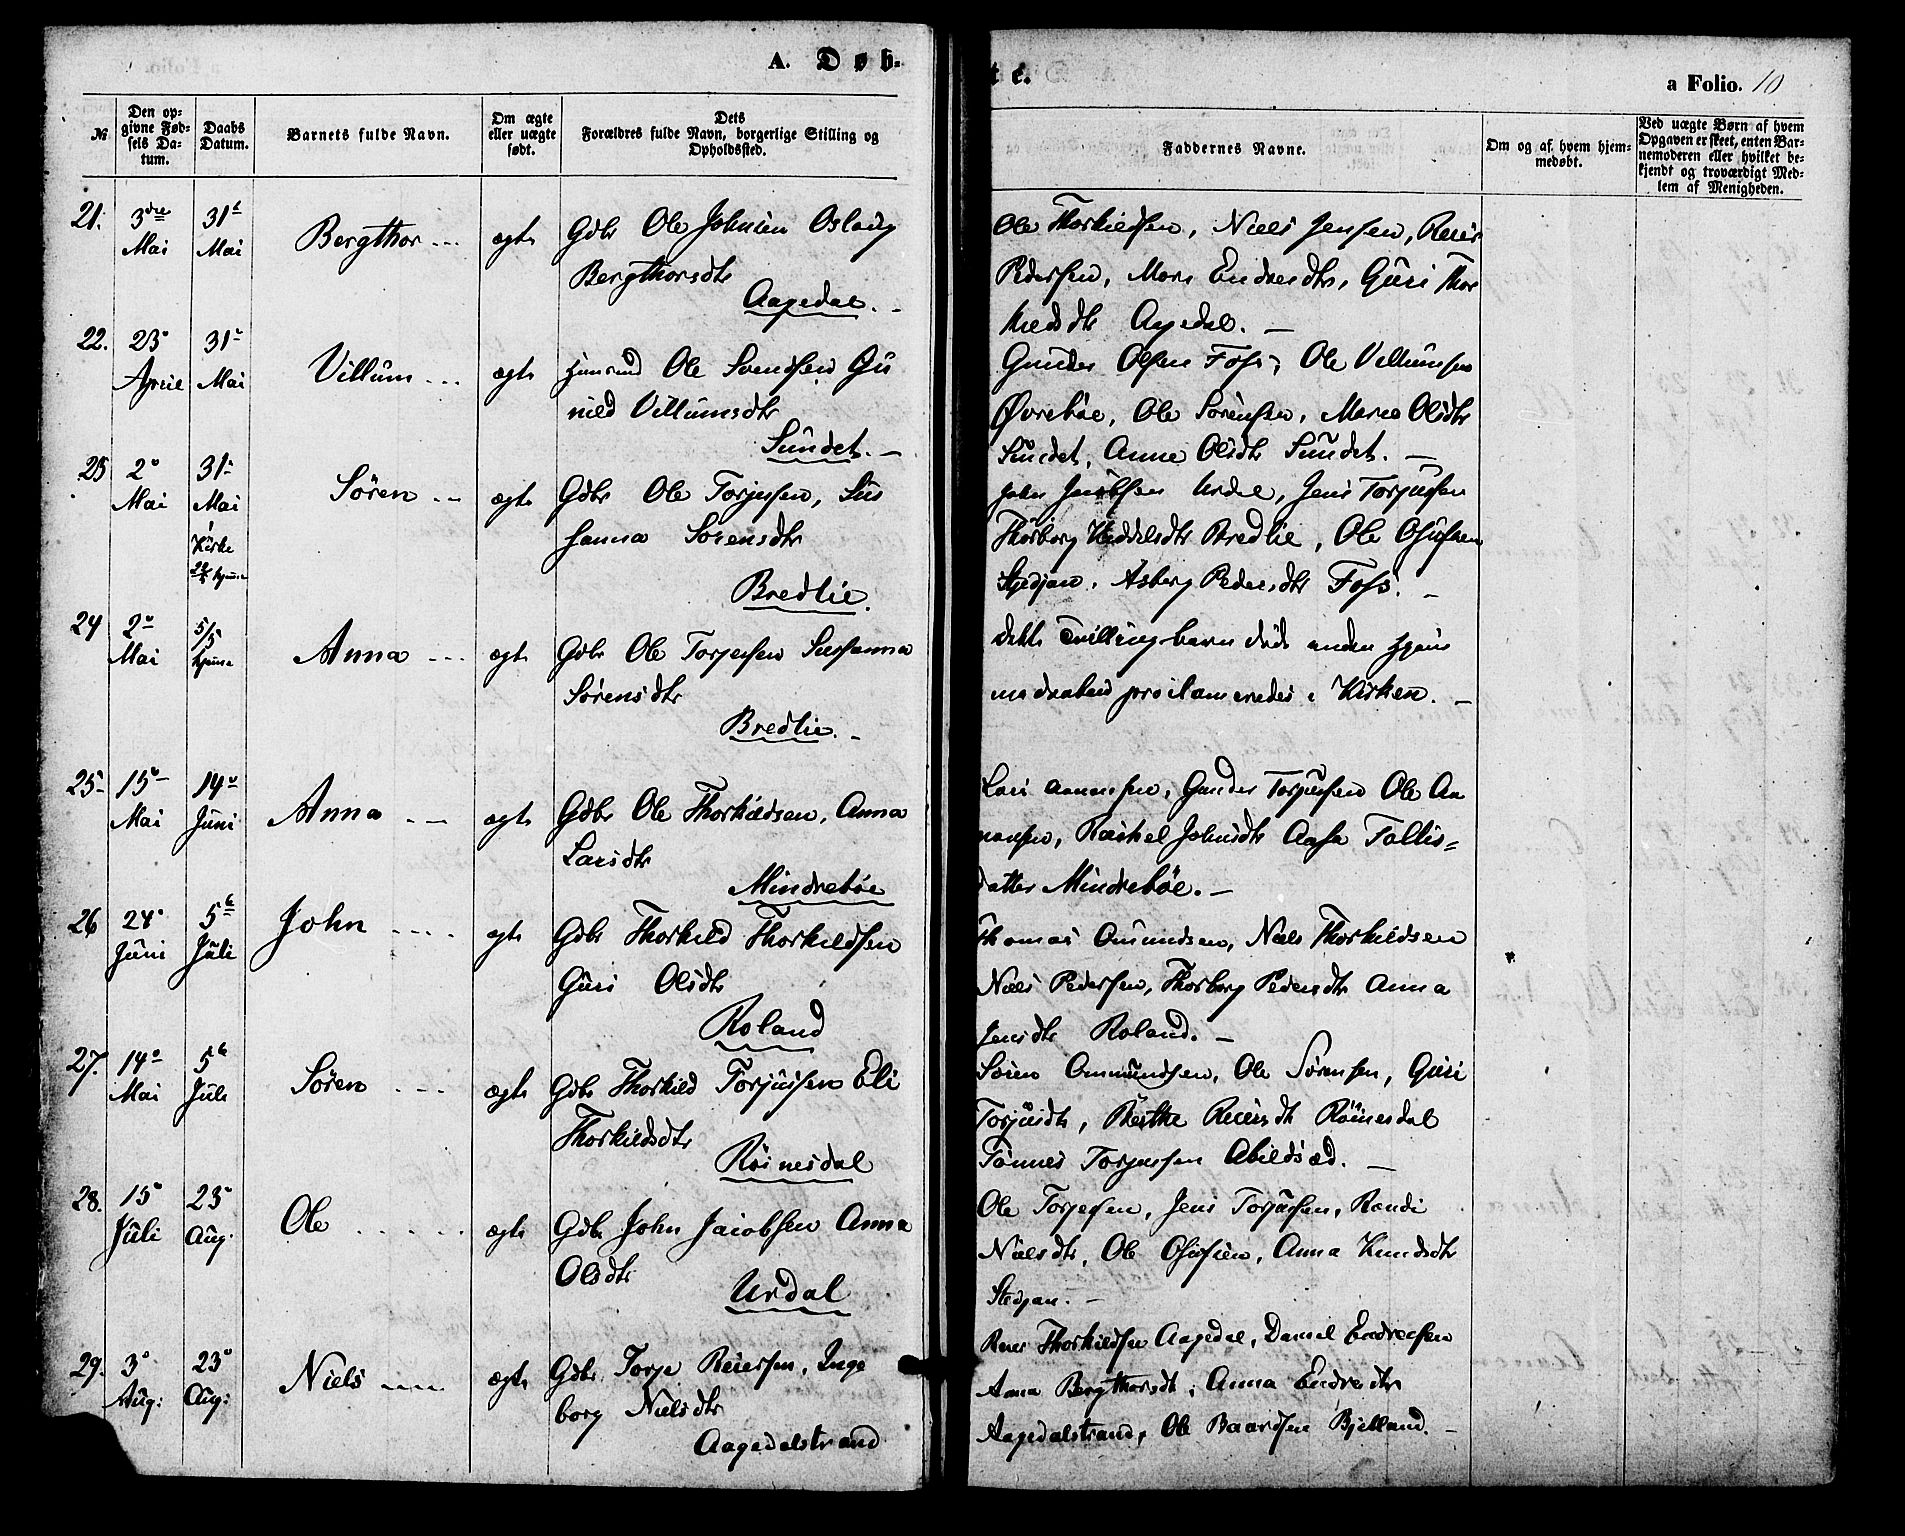 A. Døb-
№
Den opgivne Fødsels Datum.
Daabs Datum.
Barnets fulde Navn.
Om ægte eller uægte født.
Dets Forældres fulde Navn, borgerlige Stilling og Opholdssted.
21. 3die Mai 31t Mai Bergthor ægte Gdbr Ole Johnsen Oslaug
Bergthorsdtr
Aagedal.
22. 23 April 31 Mai Villum ægte Ole Svendsen Gu
nild Villumsdtr
Sundet.
23 2 Mai 31 Mai Kirke Søren ægte Gdbr Ole Torjusen, Sus
sanna Sørensdtr
Bredlie.
24 2 Mai 5/5 hjemme Anna ægte Gdbr Ole Torjusen Susanna
Sørensdtr
Bredlie.
25 15 Mai 14 Juni Anna ægte Gdbr Ole Thorkildsen, Anna
Larsdtr
Mindrebøe
26 24 Juni 5t Juli John ægte Gdbr Thorkild Thorkildsen
Guri Olsdtr
Roland
27. 14 Mai 5t Juli Søren ægte Gdbr Thorkild Torjussen Eli
Thorkildsdtr
Røinesdal
28. 15 Juli 23 Aug. Ole ægte Gdbr John Jacobsen Anna
Olsdtr
Urdal
29. 3 Aug: 23 Aug: Niels ægte Gdbr. Torje Reiersen, Inge
borg Nielsdtr
Aagedalstrand
te.
a Folio. 10
Faddernes Navne.
Om og af hvem hjemmedøbt.
Ved uægte Børn af hvem Opgaven er skeet, enten Barnemoderen eller hvilket bekjendt og troværdigt Medlem af Menigheden.
Ole Thorkildsen, Niels Jensen, Reier
Pedersen, Endresdtr, Guri Thor
kildsdtr Aagedal.
Gunder Olsen Foss, Ole Villumsen
Øvrebøe, Ole Sørensen, Maren Olsdtr
Sundet, Anne Olsdtr Sundet.
John Jacobsen Urdal, Jens Torjussen
Thorborg Bredlie, Ole
Stedjan. Asberg Pedersdtr Foss.
dette Tvillingbarn døde anden
i Kirken.
Lars Aanensen, Gunder Torjussen Ole Aa
nensen, Rachel Johnsdtr Aasa Tallis-
datter Mindrebøe.
Thomas Omundsen, Niels Thorkildsen
Niels Pedersen, Thorborg Pedersdtr Anna
Jensdtr Roland.
Søren Ommundsen, Ole Sørensen, Guri
Torjusdtr, Berthe Reiersdt Røinesdal
Tønnes Torjussen Abildsæd.
Ole Torjesen, Jens Torjussen, Randi
Nielsdtr, Ole Anna Knudsdtr
Stedjan.
Reier Thorkildsen Aagedal, Daniel Endresen
Anna Bergthorsdt, Anna Endresdtr
Aagedalstrand, Ole Baardsen Bjelland.